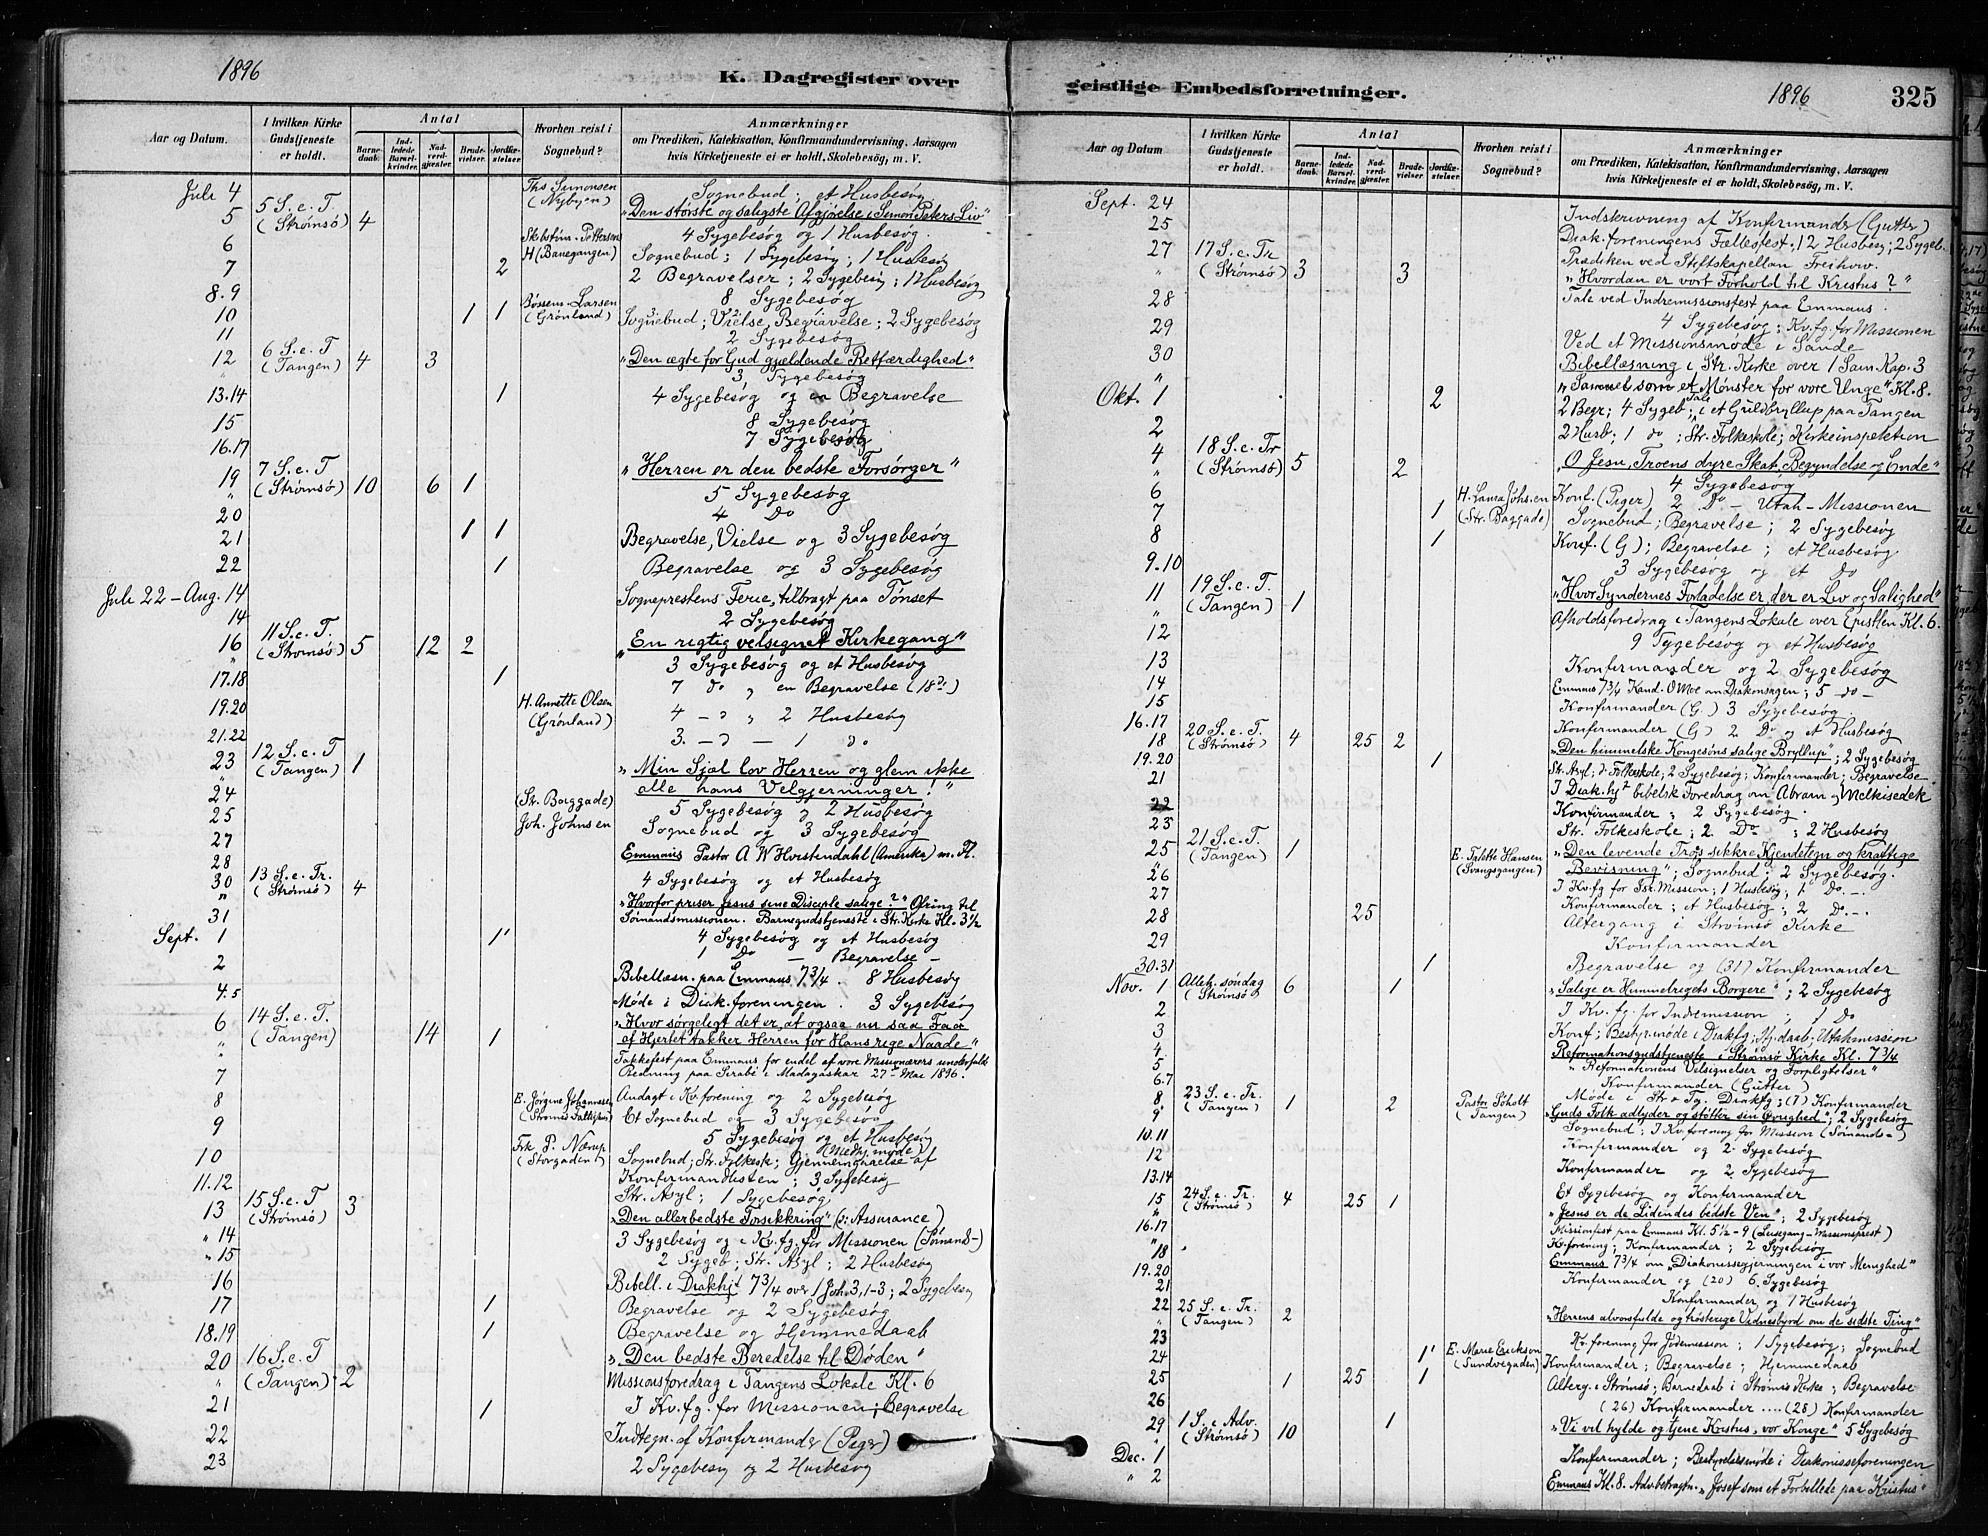 1896
K. Dagregister over
Aar og Datum.
I hvilken Kirke Gudstjeneste er holdt.
Antal
Barnedaab.
Indledede Barselkvinder.
Nadverdgjæster.
Brudevielser.
Jordfæstelser.
Hvorhen reist i Sognebud?
Anmærkninger
om Prædiken, Katekisation, Konfirmandundervisning, Aarsagen
hvis Kirketjeneste ei er holdt, Skolebesøg, m. V.
Juli 4 Ths Simonsen (Nybyen) Sognebud; et Husbesøg
5 5 S. e. T. (Strømsø) 4 "Den største og saligste Afgjørelse i Simon Peters Liv"
4 Sygebesøg og 1 Husbesøg.
6 H (Banegangen) Sognebud; 1 Sygebesøg; 1 Husbesøg
7 2 2 Begravelser; 2 Sygebesøg; 1 Husbesøg
8.9 8 Sygebesøg
10 1 1 Larsen (Grønland) Sognebud; Vielse, Begravelse; 2 Sygebesøg
11 2 Sygebesøg
12 6 S. e. T (Tangen) 4 3 "Den ægte for Gud gjældende Retfærdighed"
" 3 Sygebesøg
13.14 1 4 Sygebesøg og en Begravelse
15 8 Sygebesøg
16.17 7 Sygebesøg
19 7 S. e. T (Strømsø) 10 6 1 "Herren er den bedste Forsørger"
" 5 Sygebesøg
20 4 Do
21 1 1 Begravelse, Vielse og 3 Sygebesøg
22 1 Begravelse og 3 Sygebesøg
Juli 22 – Aug. 14 Sogneprestens Ferie, tilbragt paa Tønset
14 2 Sygebesøg
16 11 S. e. T. (Strømsø) 5 12 2 "En rigtig velsignet Kirkegang"
" 3 Sygebesøg og et Husbesøg
17.18 1 7 do " en Begravelse (18de)
19.20 H. Annette Olsen (Grønland) 4 – " " 2 Husbesøg
21.22 3. – " – 1 do
23 12 S. e. T (Tangen) 1 "Min Sjæl lov Herren og glem ikke
alle hans Velgjerninger!"
24 5 Sygebesøg og 2 Husbesøg
25 (Str. Baggade) Joh. Johnsen Sognebud og 3 Sygebesøg
27 Emmaus Pastor A W Hvistendahl (Amerika) m. Fl.
28 4 Sygebesøg og et Husbesøg
30 13 S. e. Tr. (Strømsø) 4 "Hvorfor priser Jesus sine Disciple salige?" Ofring til
" Sømandsmissionen. Barnegudstjeneste i Str. Kirke Kl. 3½
31 4 Sygebesøg og et Husbesøg
Sept. 1 1 1 Do – Begravelse –
2 Bibellæsn. paa Emmaus 7¾. 8 Husbesøg
4.5 Møde i Diak.foreningen. 3 Sygebesøg
6 14 S. e. T. (Tangen) 14 1 "Hvor sørgeligt det er, at ogsaa nu saa Faa
" af Hjertet takker Herren for Hans rige Naade"
" Takkefest paa Emmaus for endel af vore Missionærers underfulde
7 Redning paa Sirabé i Madagaskar 27de Mai 1896.
8 E. Jørgine Johannesen Andagt i Kv.forening og 2 Sygebesøg
9 Et Sognebud og 3 Sygebesøg
5 Sygebesøg og et Husbesøg
10 Frk P. Nærup (Storgaden) Sognebud; Str. Folkesk; Gjennemgaaelse af
11.12 Konfirmandlisten; 3 Sygebesøg
Str. Asyl; 1 Sygebesøg
13 15 S. e. T (Strømsø) 3 "Den allerbedste Forsikkring" (ɔ: Assurance)
" 14 3 Sygebesøg og i Kv. fg. for Missionen (Sømands–)
" 15 2 Sygeb; Str. Asyl; 2 Husbesøg
16 Bibell. i Diakhj. 7¾ over 1 Joh. 3, 1–3; 2 Sygebesøg
17 1 Begravelse og 2 Sygebesøg
18.19 1 Begravelse og Hjemmedaab
20 16 S. e. T (Tangen) 2 "Den bedste Beredelse til Døden"
" Missionsforedrag i Tangens Lokale Kl. 6
21 1 I Kv. fg. for Missionen; Begravelse
22 Indtegn. af Konfirmander (Piger)
23 2 Sygebesøg og 2 Husbesøg
geistlige Embedsforretninger.
1896
325
Aar og Datum
I hvilken Kirke Gudstjeneste er holdt.
Antal
Barnedaab.
Indledede Barselkvinder.
Nadverdgjæster.
Brudevielser.
Jordfæstelser.
Hvorhen reist i Sognebud?
Anmærkninger
om Prædiken, Katekisation, Konfirmandundervisning, Aarsagen
hvis Kirketjeneste ei er holdt, Skolebesøg, m. V.
Sept. 24 Indskrivning af Konfirmander (Gutter)
25 Diak.foreningens Fællesfest. 12 Husbesøg; 2 Sygeb.
27 17 S. e. Tr (Strømsø) 3 3 Prædiken ved Stiftskapellan Freihow.
" "Hvordan er vort Forhold til Kristus?"
28 Tale ved Indremissionsfest paa Emmaus.
29 4 Sygebesøg; Kv. fg. for Missionen
30 Ved et Missionsmøde i Sande
" Bibellæsning i Str. Kirke over 1 Sam. Kap. 3
"Samuel som et Mønster for vore Unge" Kl. 8.
Okt. 1 2 2 Begr; 4 Sygeb; Tale i et Guldbryllup paa Tangen
2 2 Husb; 1 do; Str. Folkeskole; Kirkeinspektion
4 18 S. e. Tr (Strømsø) 5 2 "O Jesu, Troens dyre Skat, Begyndelse og Ende"
" 4 Sygebesøg
6 Konf. (Piger) 2 Do – Utah–Missionen
7 1 H. Laura Johnsen (Str. Baggade) Sognebud; Begravelse; 2 Sygebesøg
8 1 Konf. (G); Begravelse; et Husbesøg
9.10 3 Sygebesøg og et Do
11 19 S. e. T. (Tangen) 1 "Hvor Syndernes Forladelse er, der er Liv og Salighed"
" Afholdsforedrag i Tangens Lokale over Epistlen Kl. 6.
12 9 Sygebesøg og et Husbesøg
13 Konfirmander og 2 Sygebesøg
14 Emmaus 7¾ Kand. O Moe om Diakonsagen; 5 –do–
15 Konfirmander (G.) 3 Sygebesøg.
16.17 Konfirmander (G) 2 Do og et Husbesøg
18 20 S. e. T. (Strømsø) 4 25 2 "Den himmelske Kongesøns salige Bryllup"; 2 Sygebesøg
19.20 1 Str. Asyl; do Folkeskole; 2 Sygebesøg; Konfirmander; Begravelse
21 I Diak.hjt bibelsk Foredrag om Abram og Melkisedek
22 Konfirmander; 2 Sygebesøg.
23 Str. Folkeskole; 2 Do; 2 Husbesøg
25 21 S. e. T. (Tangen) 1 E. Talette Hansen (Svangsgangen) "Den levende Tros sikkre Kjendetegn og kraftige
" Bevisning"; Sognebud; 2 Sygebesøg.
26 I Kv. fg for Isr. Mission; 1 Husbesøg; 1 Do. –.
27 Konfirmander; et Husbesøg; 2 Do. –.
28 25 Altergang i Strømsø Kirke
29 Konfirmander
30.31 1 Begravelse og (31) Konfirmander
Nov. 1 Alleh. søndag (Strømsø) 6 1 "Salige er Himmelrigets Borgere"; 2 Sygebesøg
2 I Kv. fg. for Indremission; 1 Do
3 Konf; Best.møde i Diakfg; Hj.daab; Utahmission
4 Reformationsgudstjeneste i Strømsø Kirke Kl. 7¾
5 "Reformationens Velsignelser og Forpligtelser"
6.7 Konfirmander (Gutter)
Møde i Str & Tg. Diakfg; (7) Konfirmander
8 23 S. e. Tr. (Tangen) 1 2 Pastor Søholt (Tangen) "Guds Folk adlyder og støtter sin Øvrighed"; 2 Sygebesøg
9 Sognebud; I Kv.forening for Mission (Sømands–)
10.11 Konfirmander og 2 Sygebesøg
12 Konfirmander og 2 Sygebesøg
13.14 Et Sygebesøg og Konfirmander
15 24 S. e. Tr. (Strømsø) 4 25 1 "Jesus er de Lidendes bedste Ven"; 2 Sygebesøg
" Missionsfest paa Emmaus Kl. 5½–9
16.17 Kv.forening; Konfirmander; 2 Sygebesøg
" 18 Emmaus 7¾ om "Diakonissegjerningen i vor Menighed"
19.20 Konfirmander og (20) 6 Sygebesøg
21 Konfirmander og 1 Husbesøg
22 25 S. e. Tr. (Tangen) 2 "Herrens alvorsfulde og trøsterige Vidnesbyrd om de sidste Ting"
23 Kv.forening for Jødemission; 1 Sygebesøg; Sognebud
24 1 E. Marie Erickson (Sundvegaden) Konfirmander; Begravelse; Hjemmedaab
25 1 25 1 Alterg. i Strømsø; Barnedaab i Strømsø Kirke; Begravelse
26 (26) Konfirmander .... (28) Konfirmander
29 1 S. i Adv. (Strømsø) 10 1 "Vi vil hylde og tjene Kristus, vor Konge" 5 Sygebesøg
Dec. 1 Konfirmander; Bestyrelsesmøde i Diakonisseforeningen
" 2 Emmaus Kl. 8. Adv.betragtn. "Josef som et Forbillede paa Kristus"